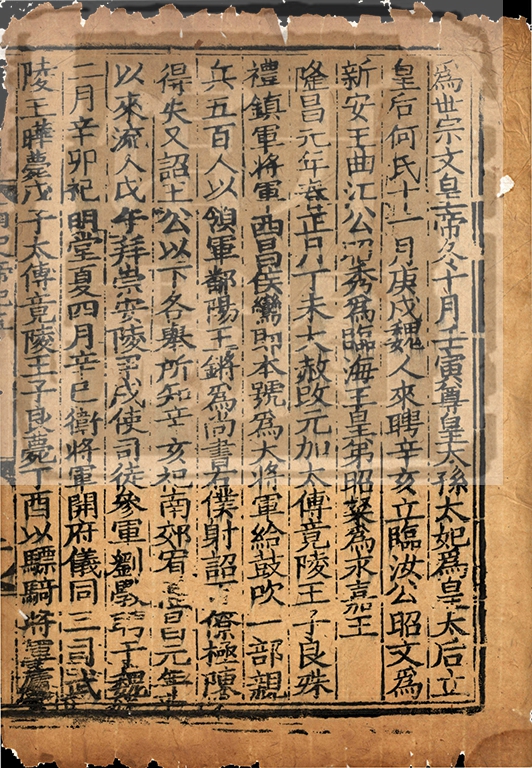 爲世宗文皇帝冬十月壬寅尊皇太孫太妃爲皇太后立
皇后何氏十一月庚戍魏人來聘辛亥立臨汝公昭文爲
新安王曲江公昭秀爲臨海王皇弟昭粲爲永嘉王
隆昌元年春正月丁未大赦改元加太傅竟陵王子良殊
禮鎮軍將軍西昌侯鸞即本號爲大將軍給鼓吹一部親
兵五百人以領軍鄱陽王鏘爲尚書右僕射詔百僚極陳
得失又詔王公以下各舉所知辛亥祀南郊宥 元年
以來流人戊午拜崇安陵甲戌使司徒參軍劉斆聘于魏
二月辛卯祀明堂夏四月辛巳衞將軍開府儀同三司武
陵王曄薨戊子太傅竟陵王子良薨丁酉以驃騎將軍廬